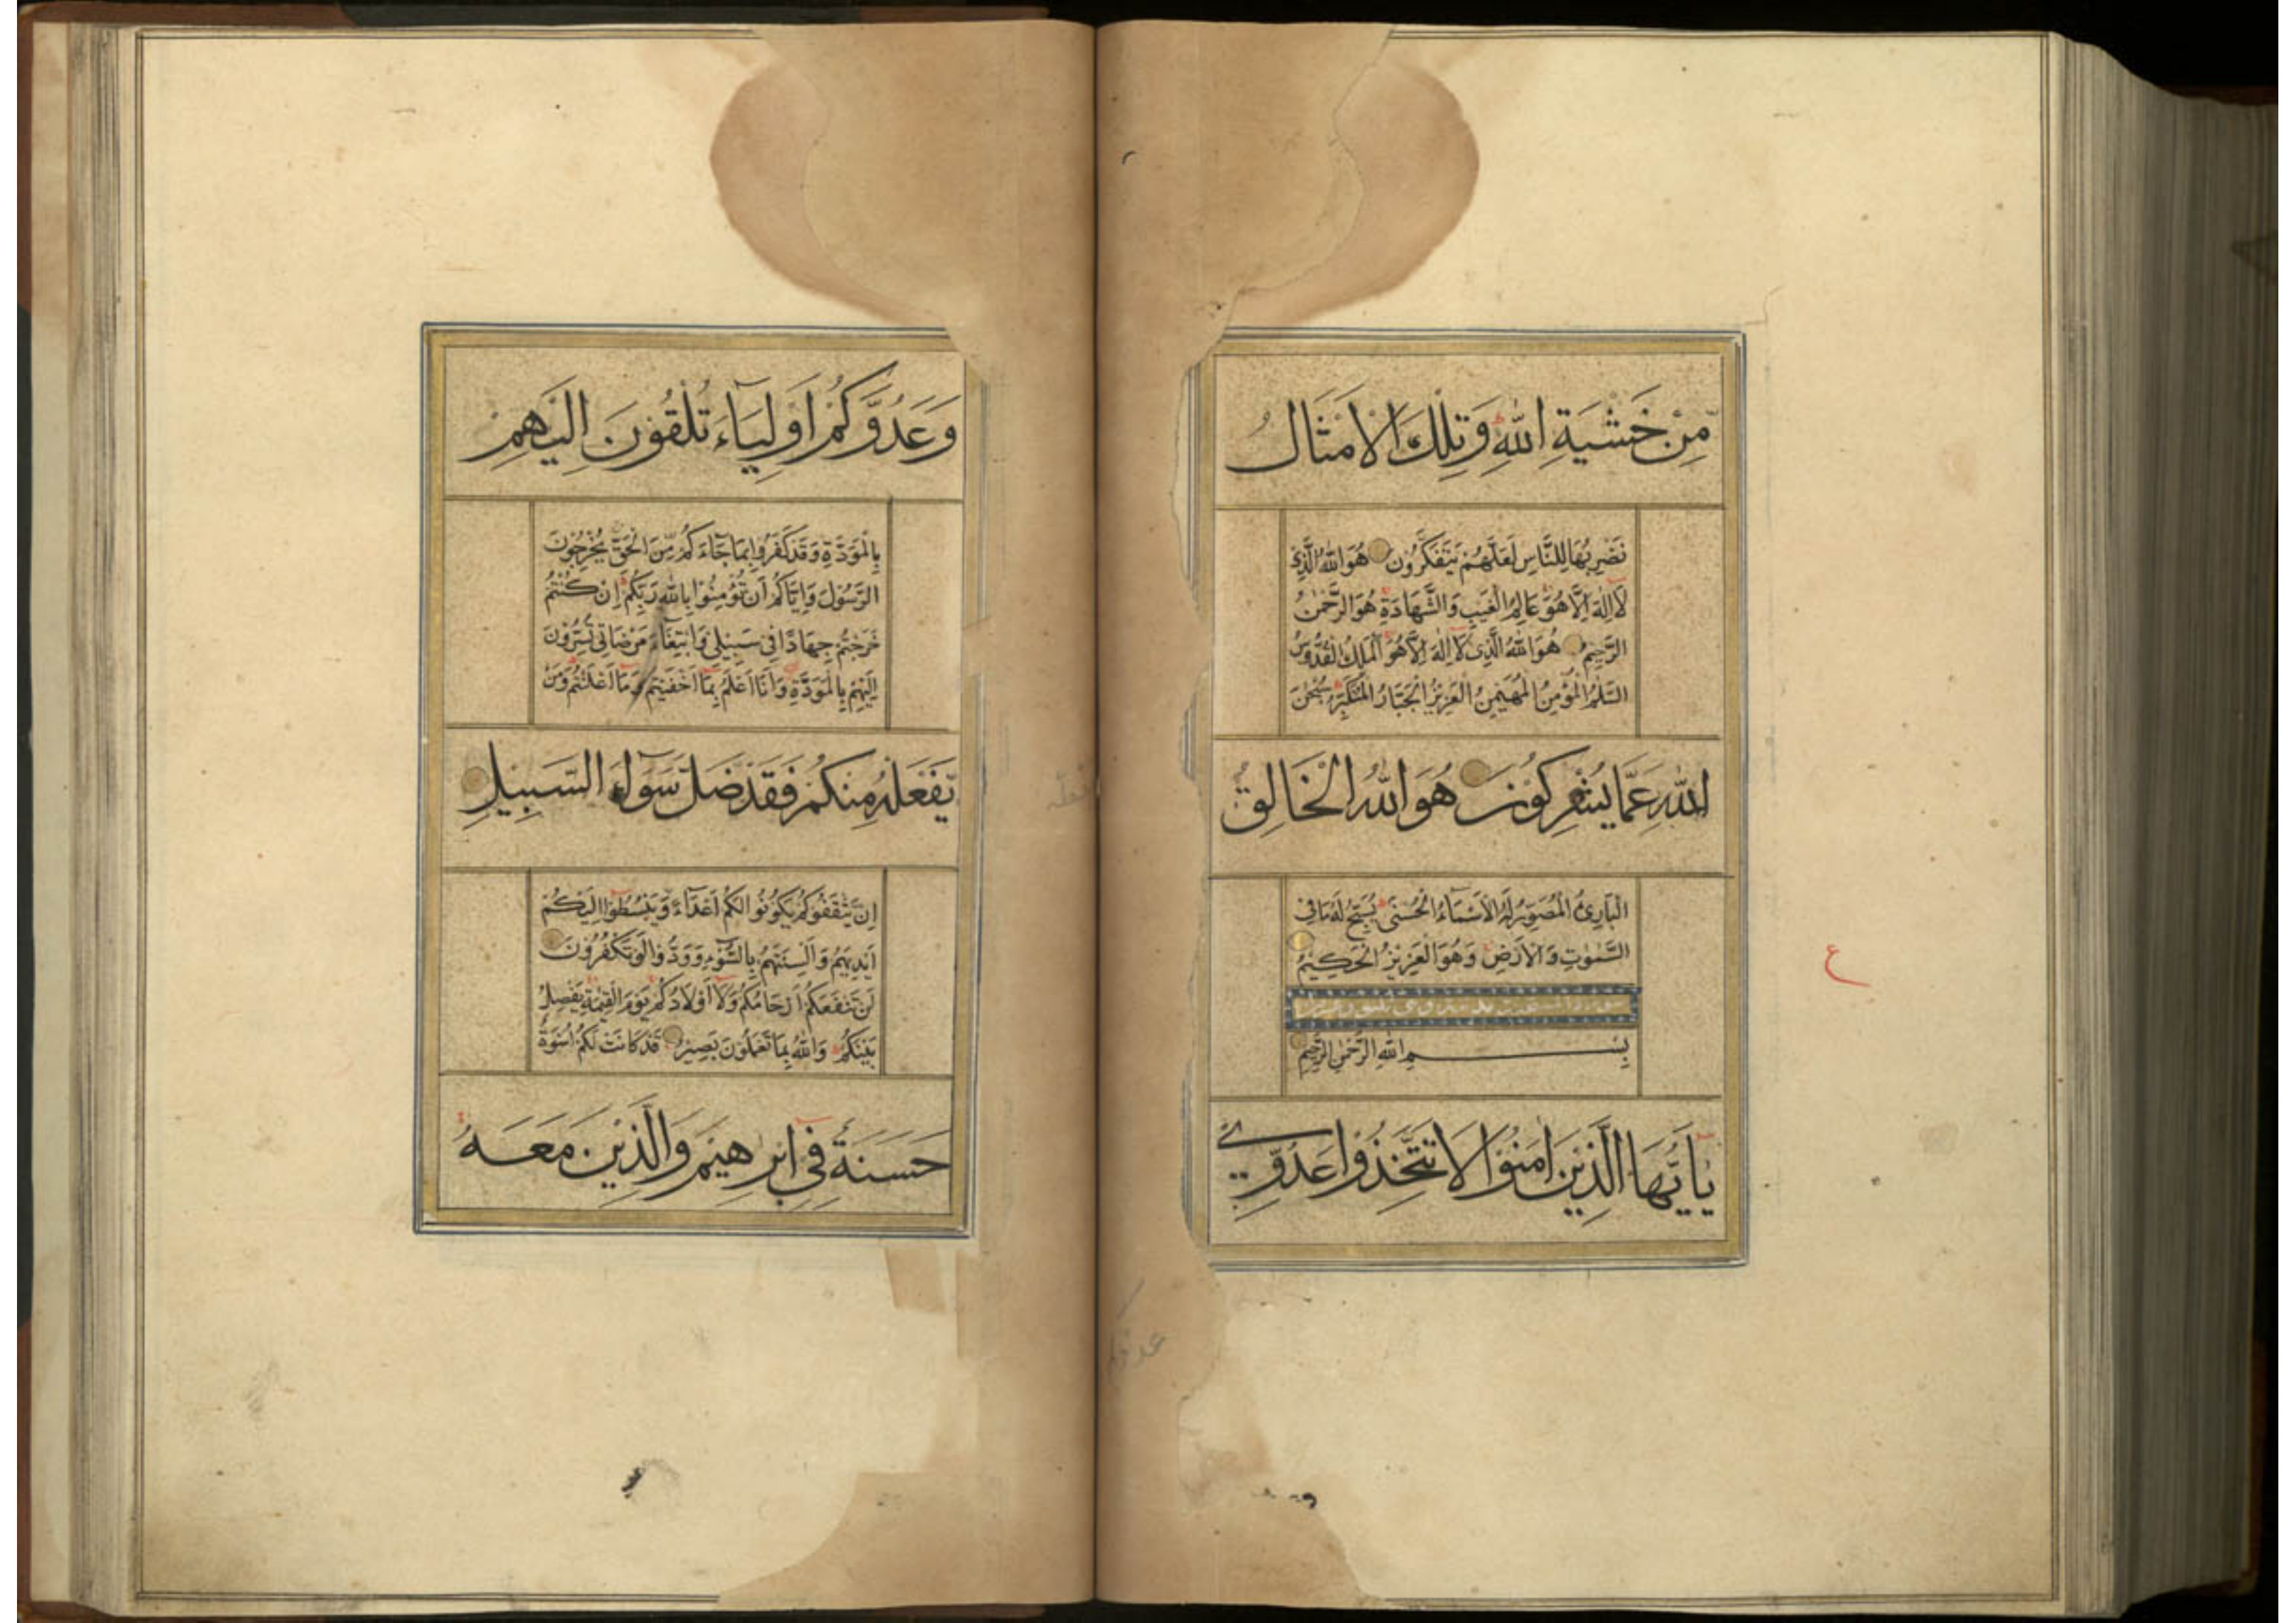 مِّنْ خَشْيَةِ اللهِ وَتِلْكَ الْاَمْثَالُ
نَضْرِبُهَا لِلنَّاسِ لَعَلَّهُمْ يَتَفَكَّرُونَ هُوَ اللهُ الَّذِيْ
لَا اِلٰهَ اِلَّا هُوَ عَالِمُ الْغَيْبِ وَالشَّهَادَةِ هُوَ الرَّحْمٰنُ
الرَّحِيْمُ هُوَ اللهُ الَّذِيْ لَا اِلٰهَ اِلَّا هُوَ اَلْمَلِكُ الْقُدُّوْسُ
السَّلٰمُ الْمُؤْمِنُ الْمُهَيْمِنُ الْعَزِيْزُ الْجَبَّارُ الْمُتَكَبِّرُ سُبْحٰنَ
اللهِ عَمَّا يُشْرِكُوْنَ هُوَ اللهُ الْخَالِقُ
الْبَارِئُ الْمُصَوِّرُ لَهُ الْاَسْمَاءُ الْحُسْنٰى يُسَبِّحُ لَهُ مَا فِي
السَّمٰوٰتِ وَالْاَرْضِ وَهُوَ الْعَزِيْزُ الْحَكِيْمُ
بِسْمِ اللهِ الرَّحْمٰنِ الرَّحِيْمِ
يَا اَيُّهَا الَّذِيْنَ اٰمَنُوْا لَا تَتَّخِذُوْا عَدُوِّيْ
ع
وَعَدُوَّكُمْ اَوْلِيَآءَ تُلْقُوْنَ اِلَيْهِمْ
بِالْمَوَدَّةِ وَقَدْ كَفَرُوْا بِمَا جَآءَكُمْ مِّنَ الْحَقِّ يُخْرِجُوْنَ
الرَّسُوْلَ وَاِيَّاكُمْ اَنْ تُؤْمِنُوْا بِاللهِ رَبِّكُمْ اِنْ كُنْتُمْ
خَرَجْتُمْ جِهَادًا فِيْ سَبِيْلِيْ وَابْتِغَآءَ مَرْضَاتِيْ تُسِرُّوْنَ
اِلَيْهِمْ بِالْمَوَدَّةِ وَاَنَا اَعْلَمُ بِمَا اَخْفَيْتُمْ وَمَا اَعْلَنْتُمْ وَمَنْ
يَّفْعَلْهُ مِنْكُمْ فَقَدْ ضَلَّ سَوَآءَ السَّبِيْلِ
اِنْ يَّثْقَفُوْكُمْ يَكُوْنُوْا لَكُمْ اَعْدَآءً وَّيَبْسُطُوْا اِلَيْكُمْ
اَيْدِيَهُمْ وَاَلْسِنَتَهُمْ بِالسُّوْٓءِ وَوَدُّوْا لَوْ تَكْفُرُوْنَ
لَنْ تَنْفَعَكُمْ اَرْحَامُكُمْ وَلَا اَوْلَادُكُمْ يَوْمَ الْقِيٰمَةِ يَفْصِلُ
بَيْنَكُمْ وَاللهُ بِمَا تَعْمَلُوْنَ بَصِيْرٌ قَدْ كَانَتْ لَكُمْ اُسْوَةٌ
حَسَنَةٌ فِيْ اِبْرٰهِيْمَ وَالَّذِيْنَ مَعَهُ